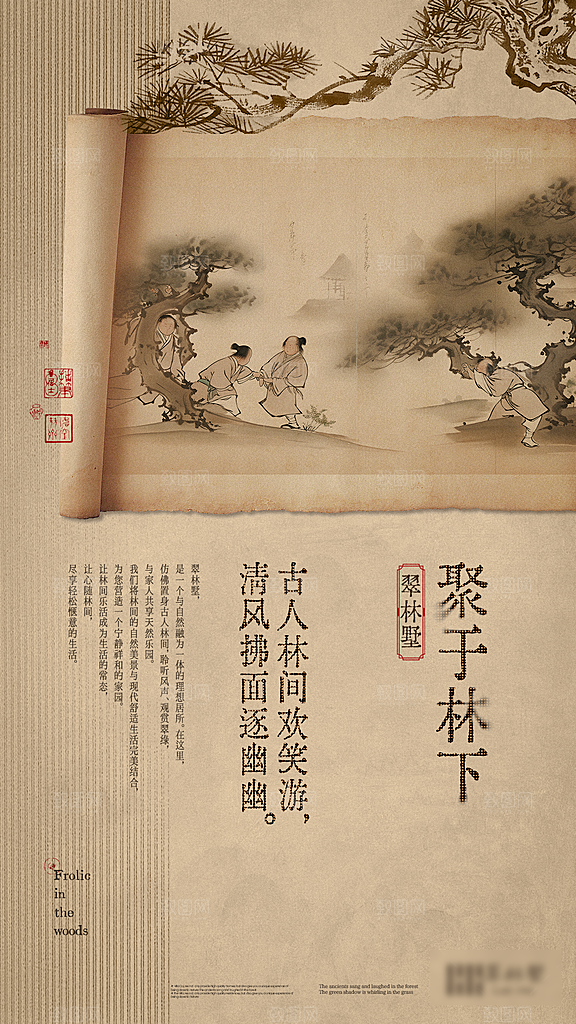 聚于林下
翠林墅
古人林间欢笑游，
清风拂面逐幽幽。
翠林墅，
是一个与自然融为一体的理想居所。在这里，
仿佛置身古人林间，聆听风声、观赏翠绿，
与家人共享天然乐园。
我们将林间的自然美景与现代舒适生活完美结合，
为您营造一个宁静祥和的家园。
让林间乐活成为生活的常态，
让心随林间，
尽享轻松惬意的生活。
Frolic
in
the
woods
The ancients sang and laughed in the forest
The green shadow is whirling in the grass